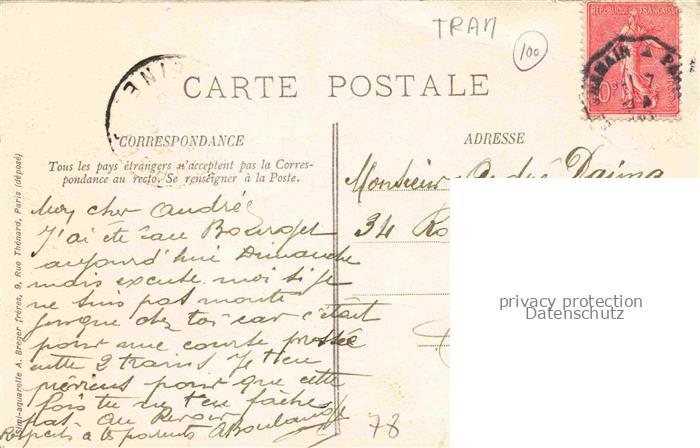 TRAM
100
RÉPUBLIQUE FRANÇAISE
CARTE POSTALE
CORRESPONDANCE
ADRESSE
Tous les pays étrangers n'acceptent pas la Corres-
pondance au recto. Se renseigner à la Poste.
Simi-aquarelle A. Breger frères, 9, Rue Thénard, Paris (déposé)
Mon cher André
J'ai été au Bourget
aujourd'hui Dimanche
mais excuse moi si je
ne suis pas monté
jusque chez toi car c'était
pour une course pressée
entre 2 trains Je t'en
préviens pour que cette
fois tu ne t'en fâches
pas. Au Revoir
Respects à tes parents ABoulanger
Monsieur André
34
privacy protection
Datenschutz
78